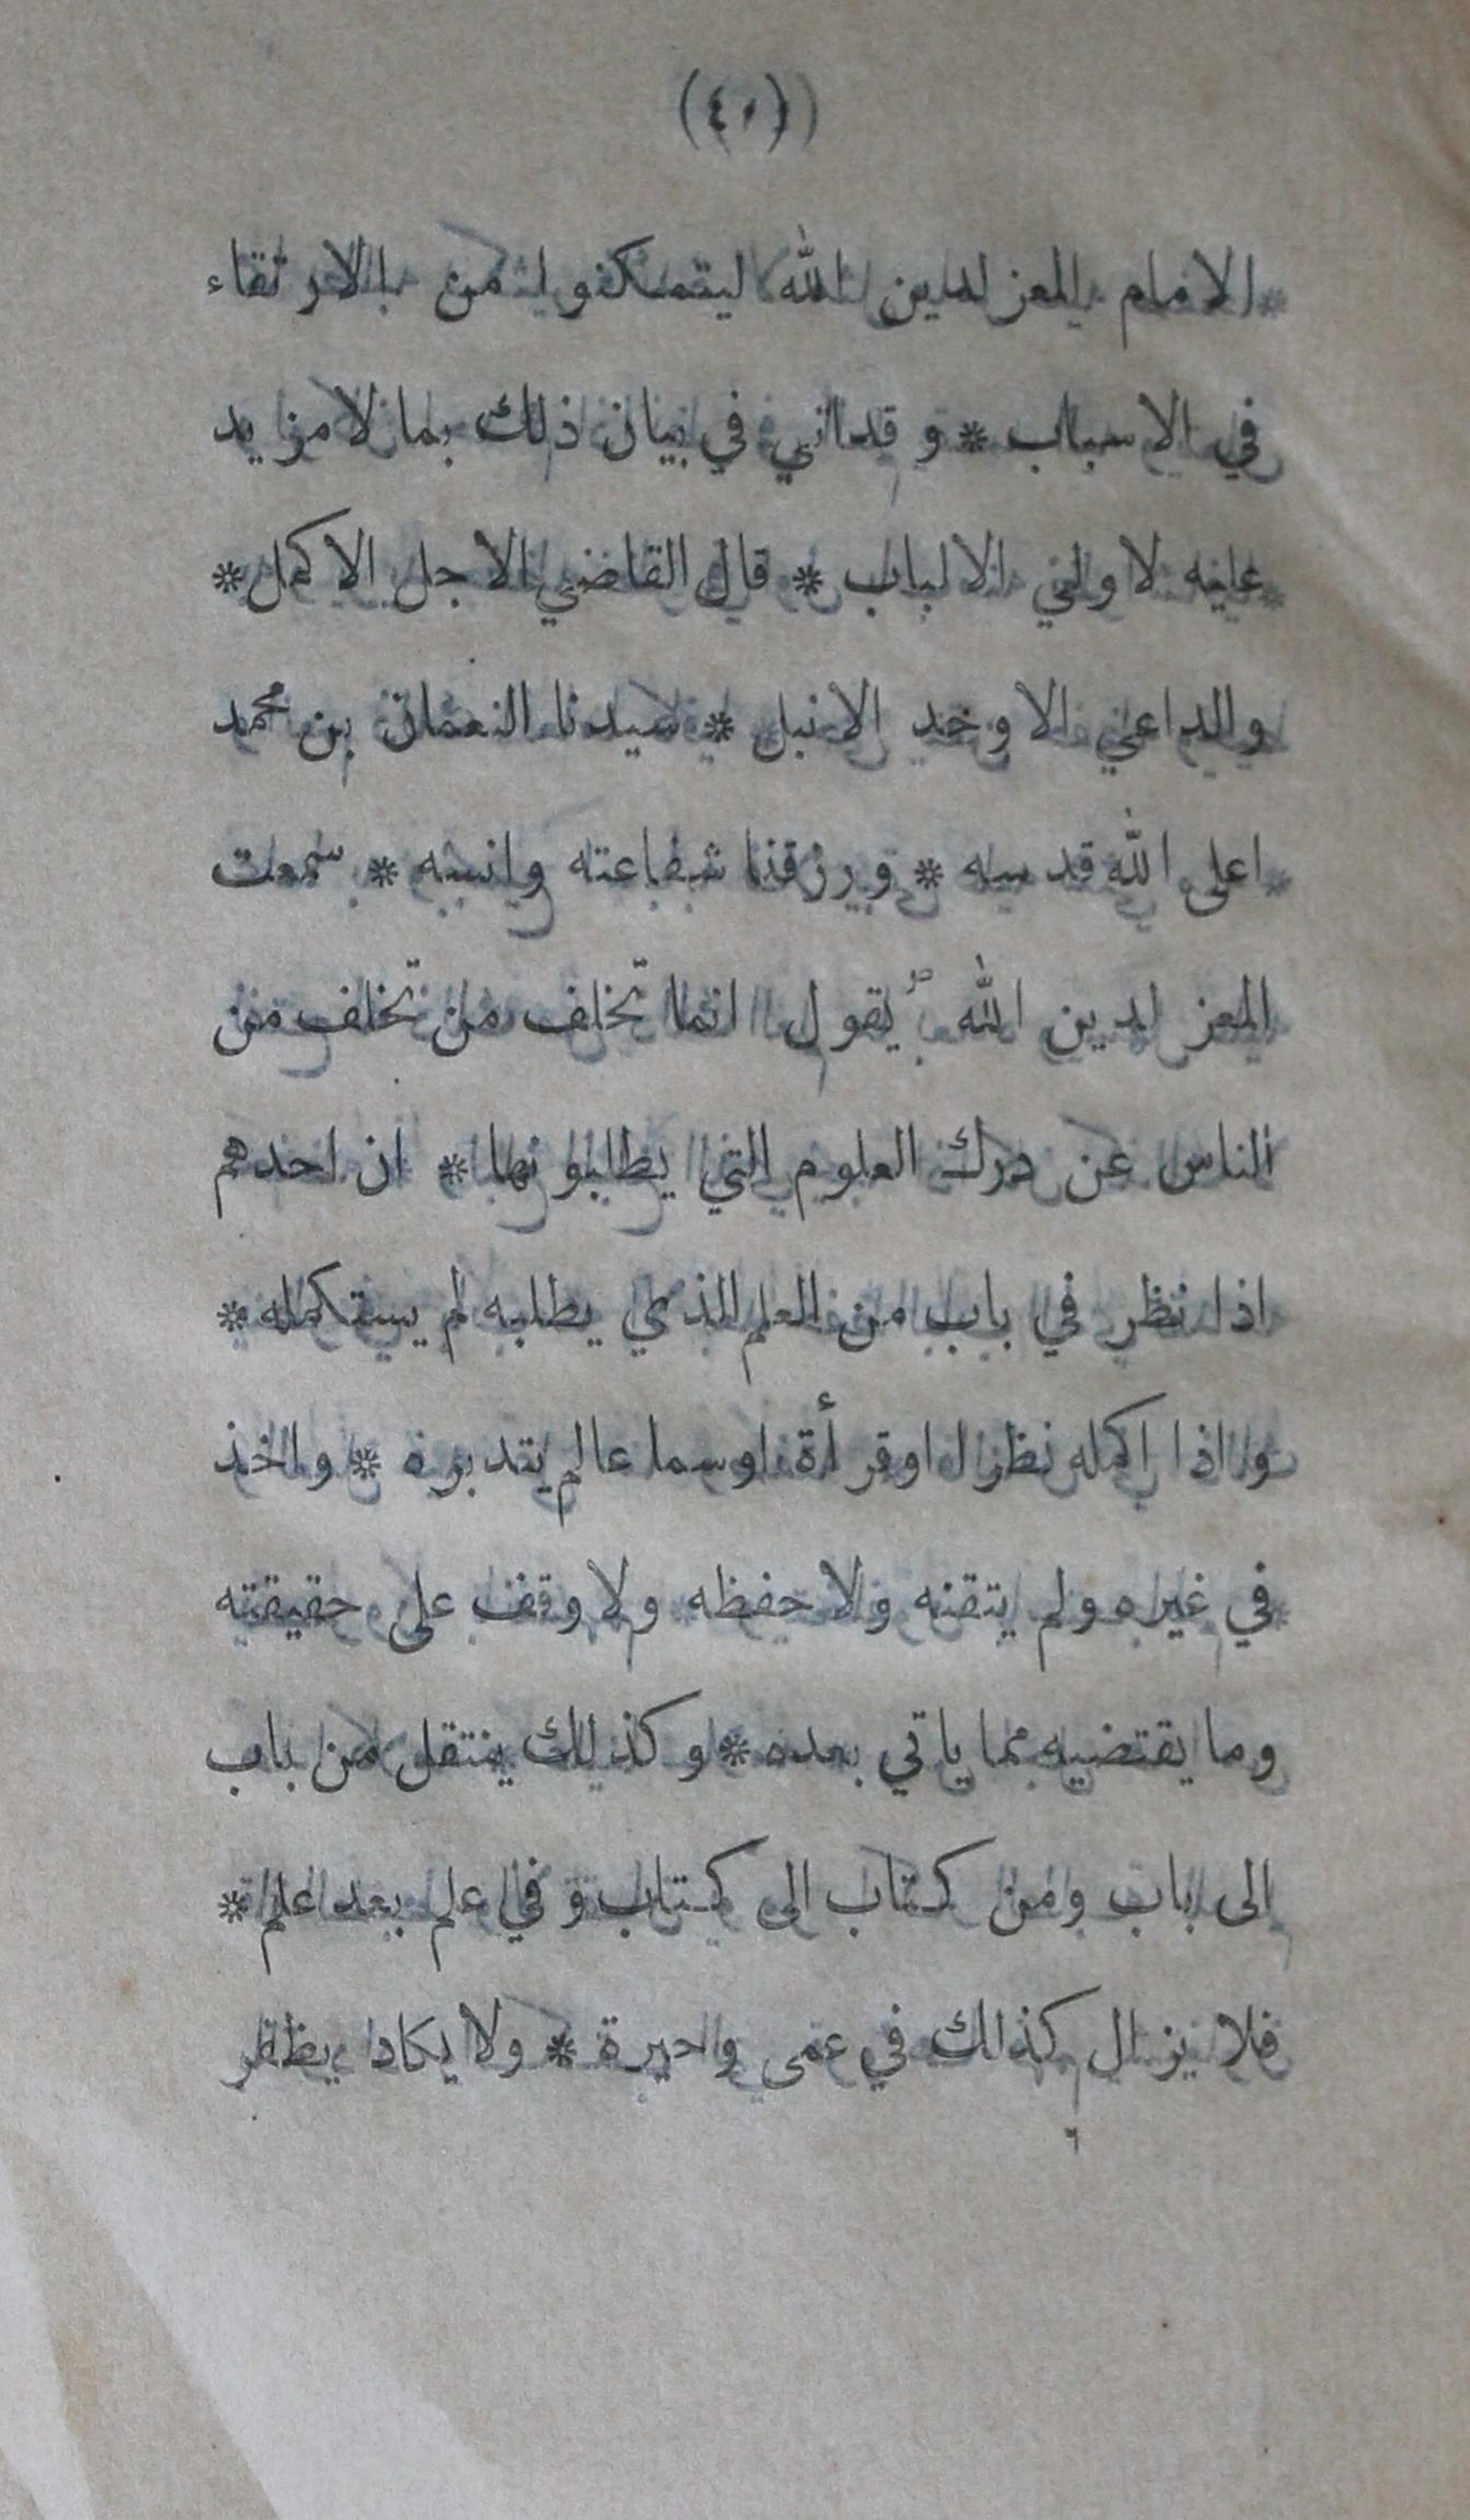 (٤٠)
الامام المعز لدين الله ليتمكنوا من الارتقاء
في الاسباب * وقد اتي في بيان ذلك بما لا مزيد
عليه لاولي الالباب * قال القاضي الاجل الاكمل *
والداعي الاوحد الانبل * سيدنا النعمان بن محمد
اعلى الله قدسه * ورزقنا شفاعته وانسه * سمعت
المعز لدين الله يقول انما تخلف من تخلف من
الناس عن درك العلوم التي يطلبونها * ان احدهم
اذا نظر في باب من العلم الذي يطلبه لم يستكمله *
واذا اكمله نظرا او قرأة او سماعا لم يتدبره * واخذ
في غيره ولم يتقنه ولا حفظه ولا وقف على حقيقته
وما يقتضيه مما ياتي بعده * وكذلك ينتقل من باب
الى باب ومن كتاب الى كتاب وفي علم بعد علم *
فلا يزال كذلك في عمى وحيرة * ولا يكاد يظفر
٦